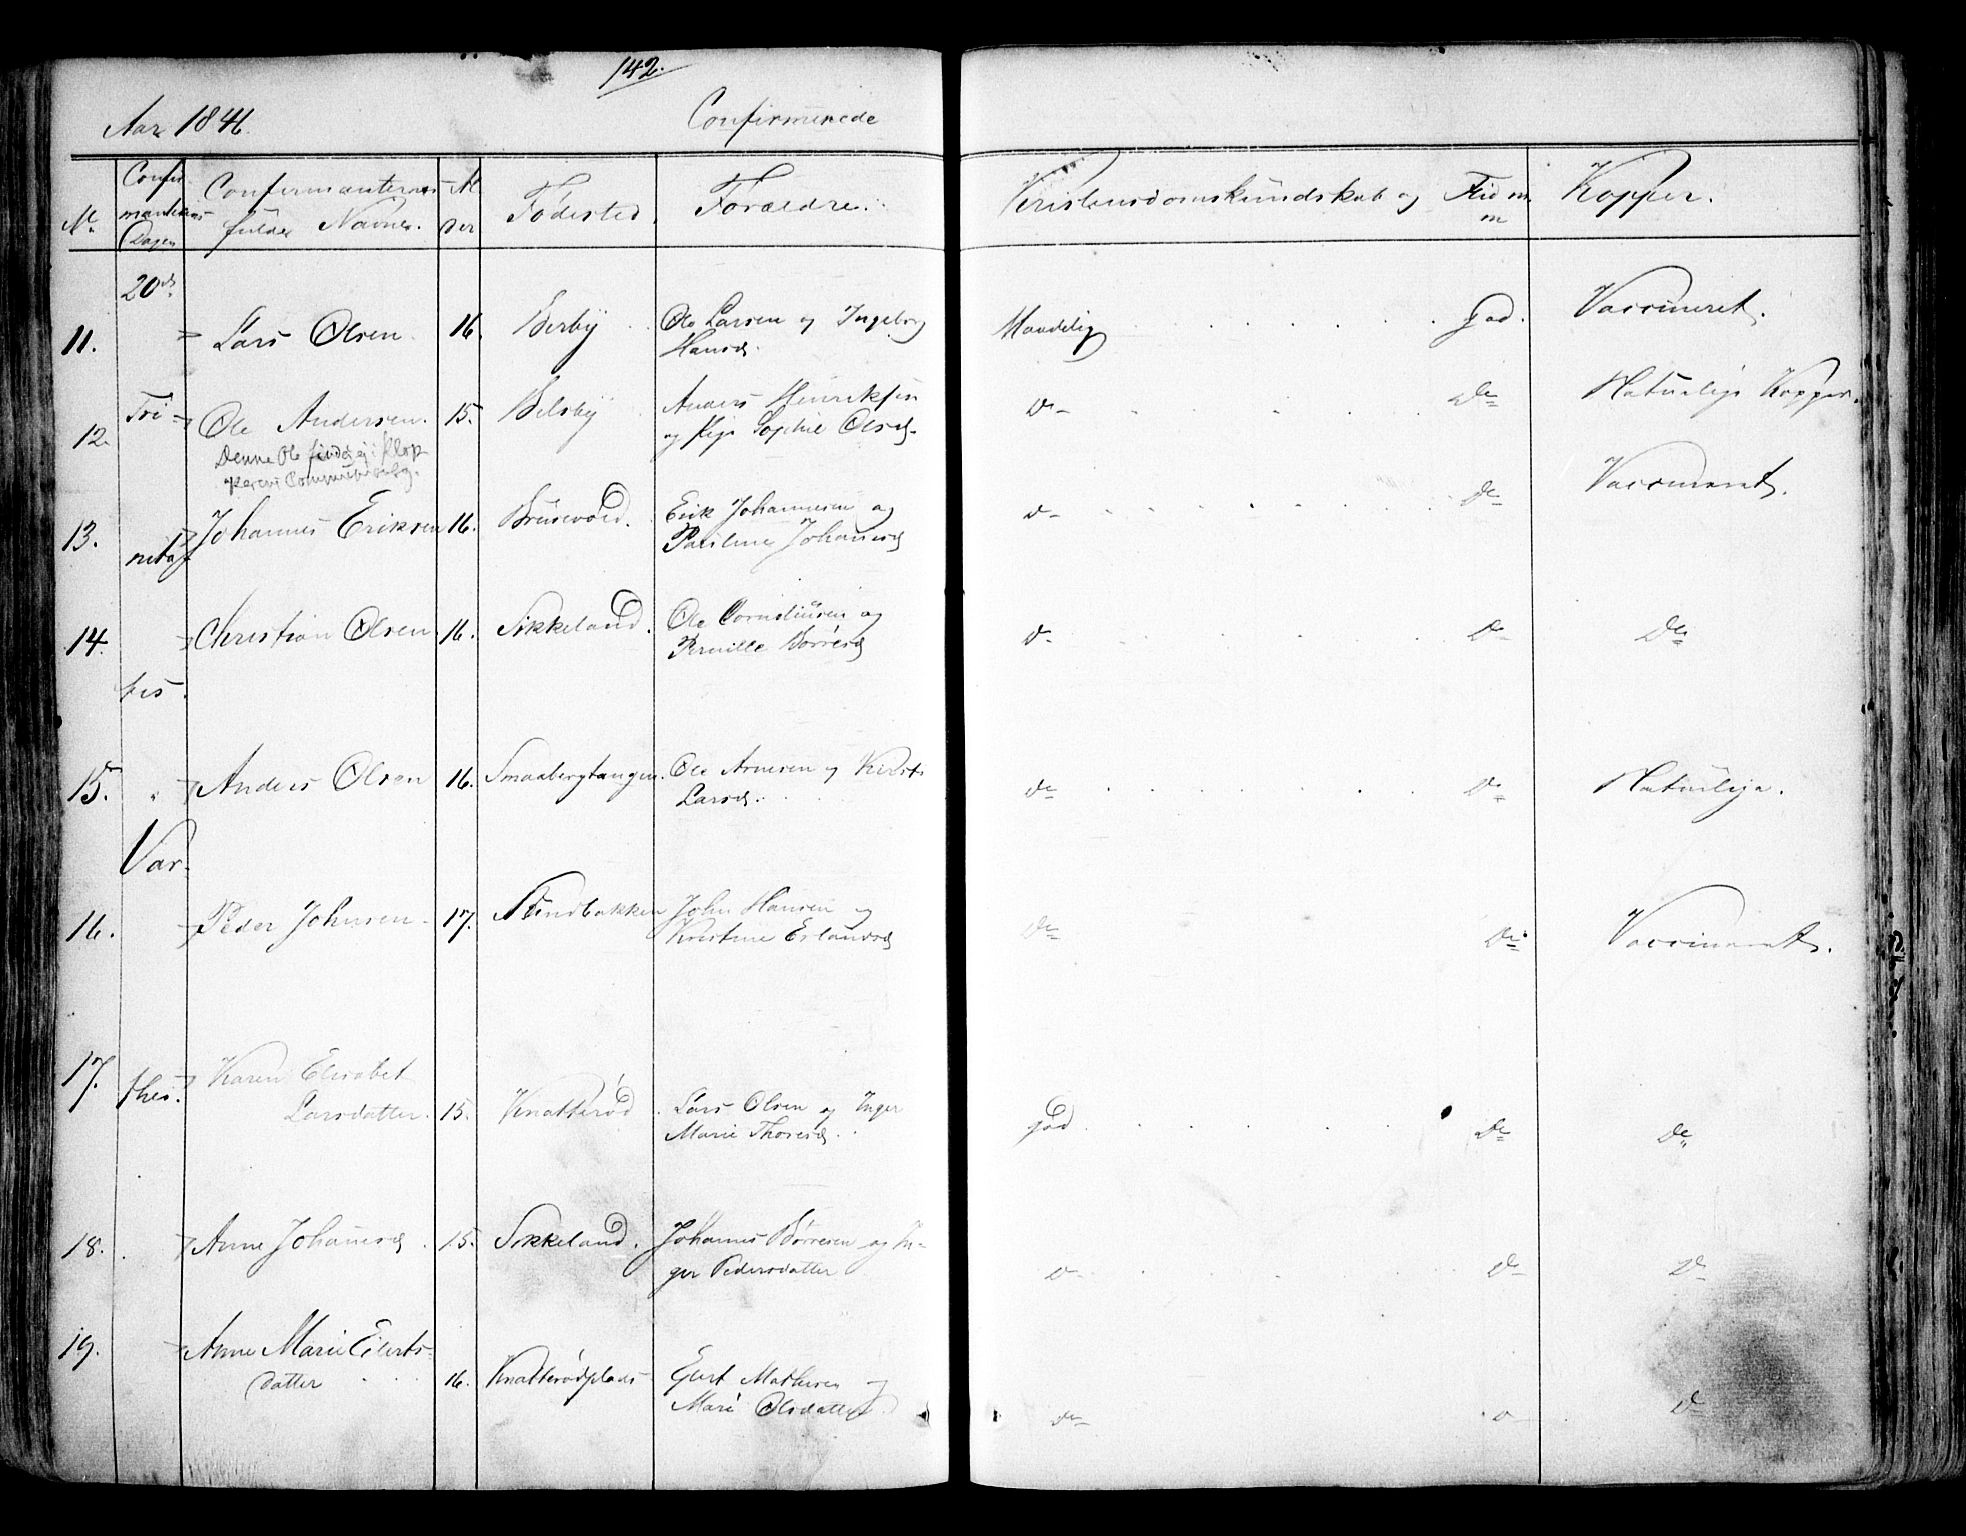 142.
Aar 1846.
Confirmerede
No
Confir
mantenes
Dagen
Confirmanternes
fulde Navne.
Al
der
Fødested.
Forældre.
Kristensdomskundskab og Flid m
m
Kopper.
20de
11. Lars Olsen. 16. Berby Ole Larsen og Ingeborg Maadelig God. Vaccineret.
Hansd.
Tri
12. Ole Andersen. 15. Anders Henriksen Do Do Naturlige Kopper.
og Sophie Olsd.
Denne Ole findes ej i Klok
kerens
13. Johannes Eriksen 16. Erik Johannesen og Do Do Vaccineret.
Pauline Johansd
nitat
14. Christian Olsen. 16. Sikkeland. Ole Corneliusen og Do Do Do
Pernille Børresd
tis.
15. Anders Olsen 16. Smaabergtangen. Ole Arnesen og Kirsti Do Do Naturlige.
Larsd.
Var
16. Peder Johnsen 17. John Hansen og Do Do Vaccineret.
Kristine Erlandsd
17. thes. Karen Elisabet
Larsdatter. 15. Knatterød. Lars Olsen og Inger God Do Do
Marie Thoresd.
18. Anne Johansd. 15. Sikkeland. Johannes Børresen og In-
ger Pedersdatter Do Do Do
19. Anne Marie Eilerts-
datter 16. Knatterødplads Mathisen og
Mari Olsdatter Do Do Do